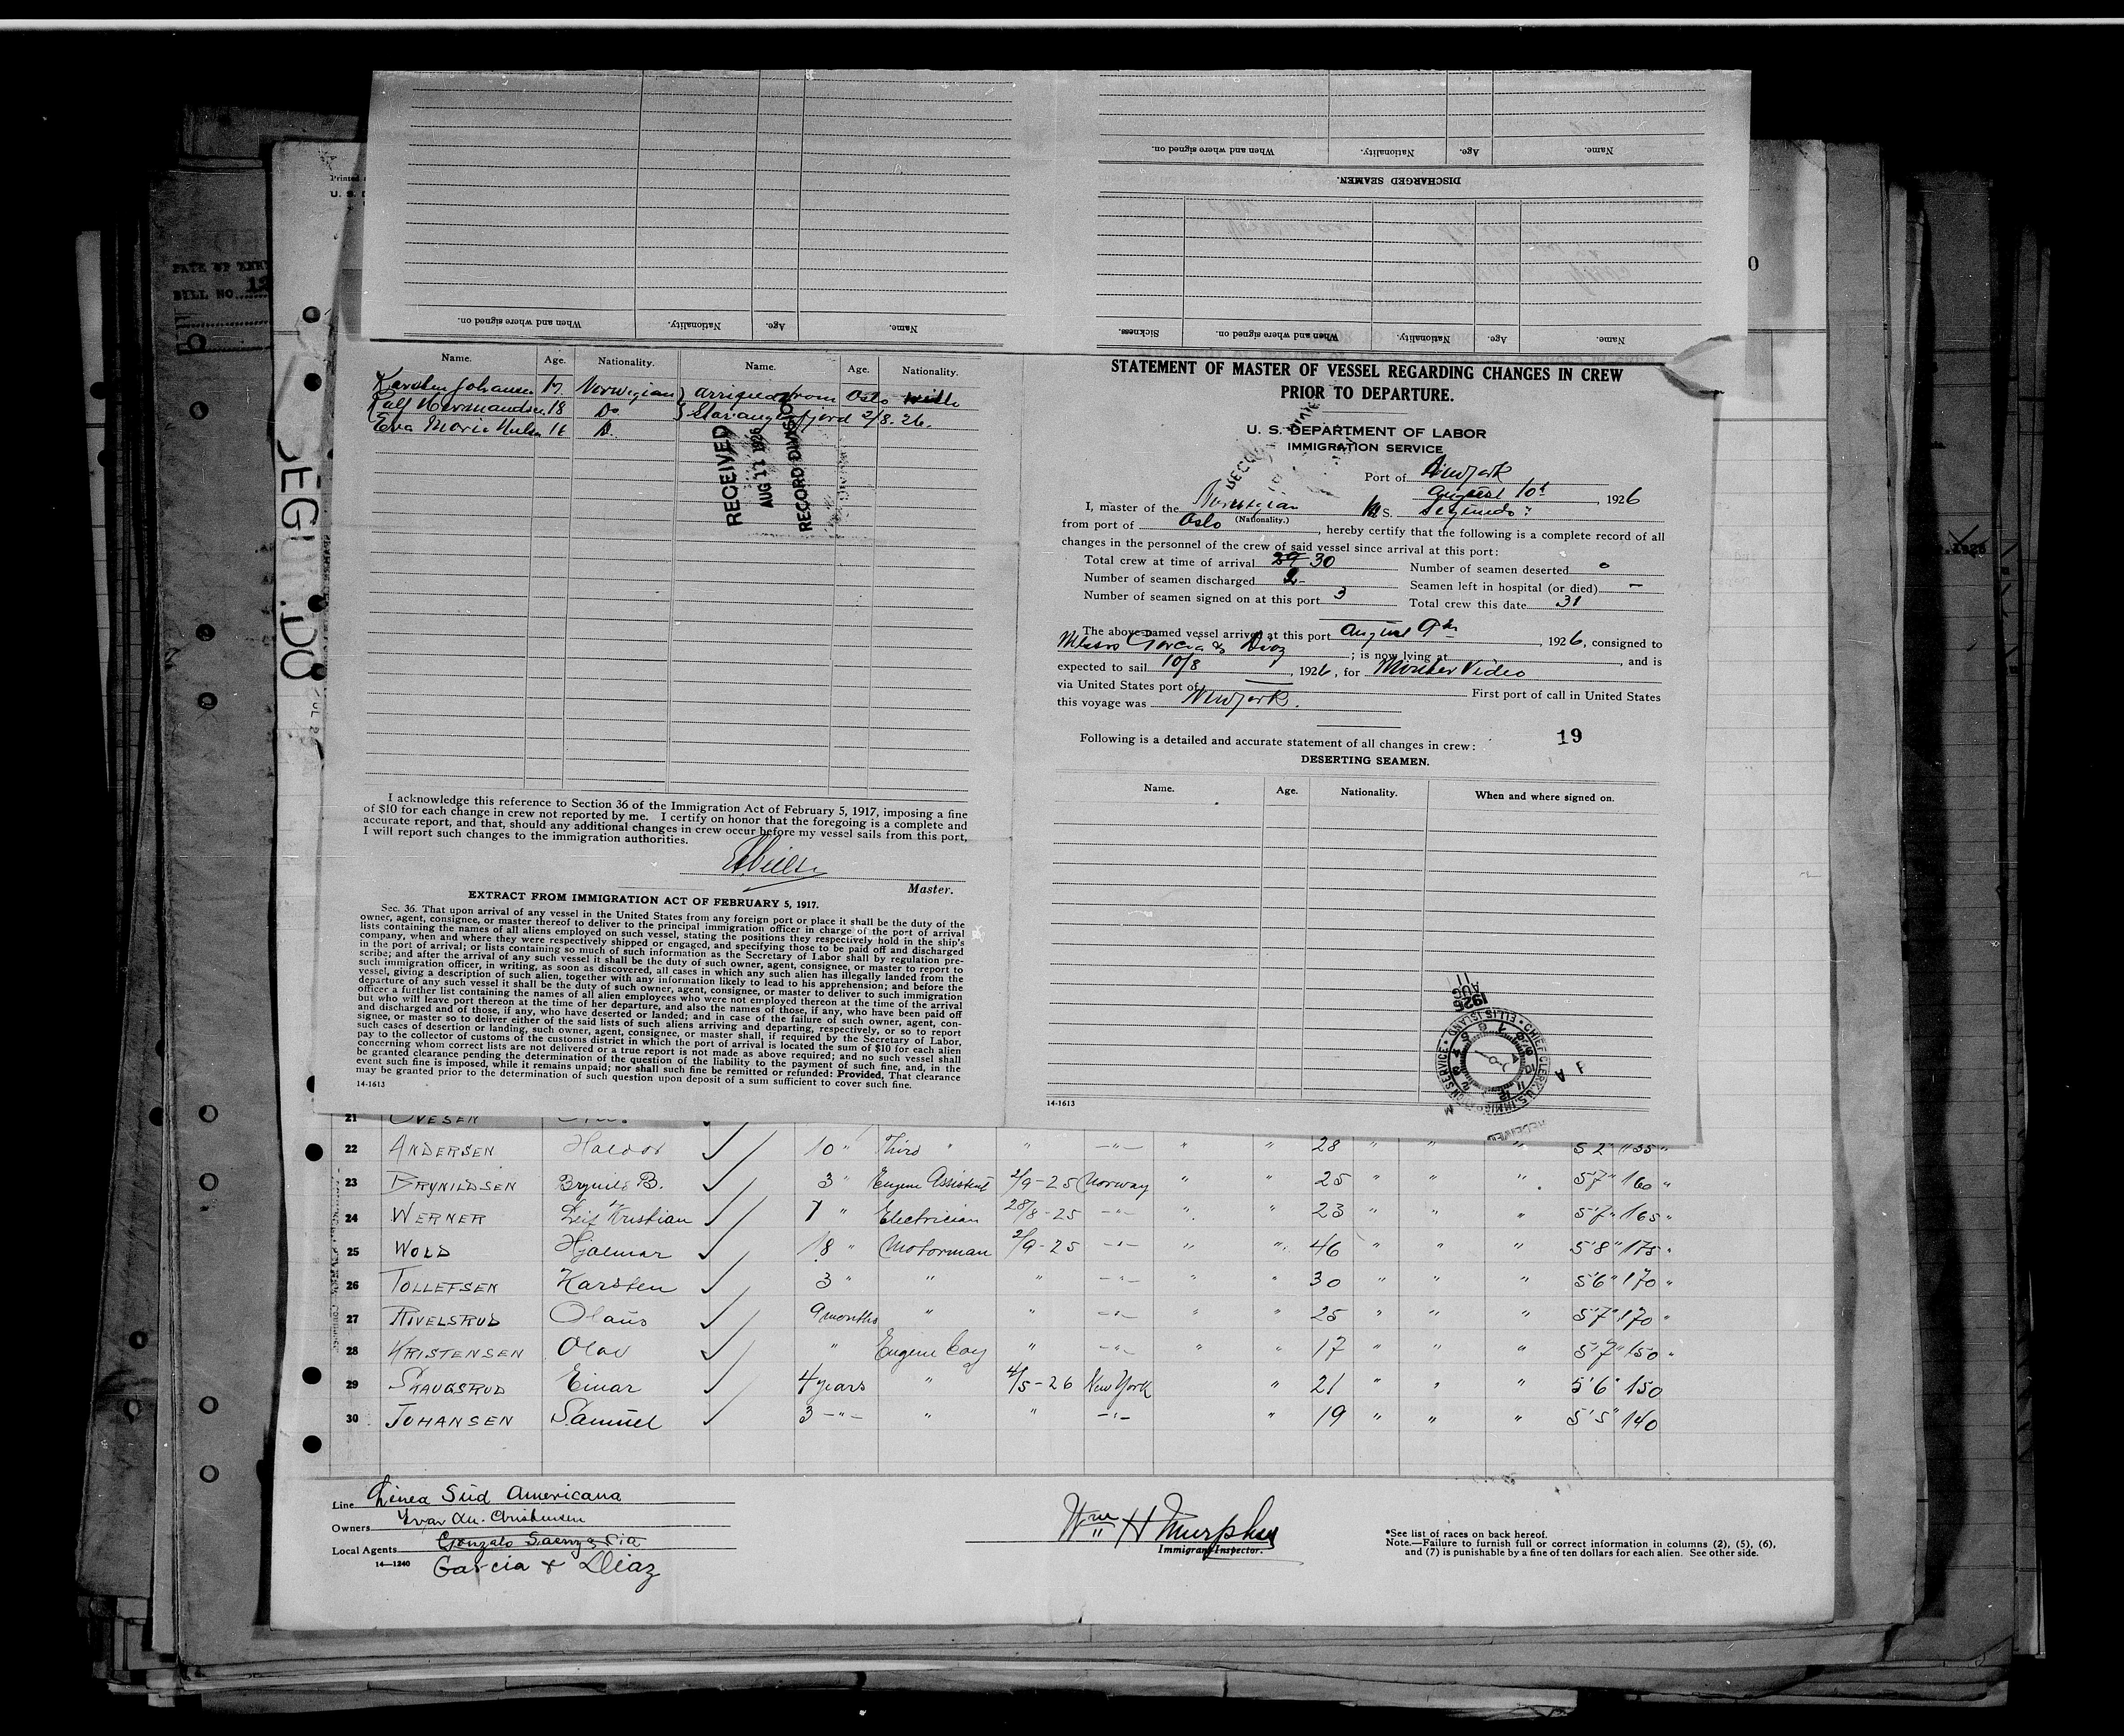 When and where signed on.
Nationality.
Age.
Name.
DISCHARGED SEAMEN.
Printed
U. S. D
DATE OF
BILL NO. 12
Name.
Age.
Nationality.
When and where signed on.
Name.
Age.
Nationality.
When and where signed on.
Sickness.
Name. Age. Nationality. Name. Age. Nationality.
Karsten Johansen 17. Norwegian } arrived from Oslo with
Ralf Hermandsen 18 Do } Stavangerfjord 2/8. 26.
Eva Marie 16 D.
RECEIVED
AUG 11 1926
RECORD DIVISION
I acknowledge this reference to Section 36 of the Immigration Act of February 5, 1917, imposing a fine
of $10 for each change in crew not reported by me. I certify on honor that the foregoing is a complete and
accurate report, and that, should any additional changes in crew occur before my vessel sails from this port,
I will report such changes to the immigration authorities.
Master.
EXTRACT FROM IMMIGRATION ACT OF FEBRUARY 5, 1917.
Sec. 36. That upon arrival of any vessel in the United States from any foreign port or place it shall be the duty of the
owner, agent, consignee, or master thereof to deliver to the principal immigration officer in charge of the port of arrival
lists containing the names of all aliens employed on such vessel, stating the positions they respectively hold in the ship's
company, when and where they were respectively shipped or engaged, and specifying those to be paid off and discharged
in the port of arrival; or lists containing so much of such information as the Secretary of Labor shall by regulation pre-
scribe; and after the arrival of any such vessel it shall be the duty of such owner, agent, consignee, or master to report to
such immigration officer, in writing, as soon as discovered, all cases in which any such alien has illegally landed from the
vessel, giving a description of such alien, together with any information likely to lead to his apprehension; and before the
departure of any such vessel it shall be the duty of such owner, agent, consignee, or master to deliver to such immigration
officer a further list containing the names of all alien employees who were not employed thereon at the time of the arrival
but who will leave port thereon at the time of her departure, and also the names of those, if any, who have been paid off
and discharged and of those, if any, who have deserted or landed; and in case of the failure of such owner, agent, con-
signee, or master so to deliver either of the said lists of such aliens arriving and departing, respectively, or so to report
such cases of desertion or landing, such owner, agent, consignee, or master shall, if required by the Secretary of Labor,
pay to the collector of customs of the customs district in which the port of arrival is located the sum of $10 for each alien
concerning whom correct lists are not delivered or a true report is not made as above required; and no such vessel shall
be granted clearance pending the determination of the question of the liability to the payment of such fine, and, in the
event such fine is imposed, while it remains unpaid; nor shall such fine be remitted or refunded: Provided, That clearance
may be granted prior to the determination of such question upon deposit of a sum sufficient to cover such fine.
14-1613
STATEMENT OF MASTER OF VESSEL REGARDING CHANGES IN CREW
PRIOR TO DEPARTURE.
U. S. DEPARTMENT OF LABOR
IMMIGRATION SERVICE
Port of New York
August 10th, 1926
I, master of the Norwegian M S. Segundo
(Nationality.)
from port of Oslo, hereby certify that the following is a complete record of all
changes in the personnel of the crew of said vessel since arrival at this port:
Total crew at time of arrival 29 30 Number of seamen deserted 0
Number of seamen discharged 2- Seamen left in hospital (or died) –
Number of seamen signed on at this port 3 Total crew this date 31
The above-named vessel arrived at this port August 9th, 1926, consigned to
Messrs Garcia & Diaz; is now lying at , and is
expected to sail 10/8, 1926, for Monte Video
via United States port of First port of call in United States
this voyage was New York.
Following is a detailed and accurate statement of all changes in crew: 19
DESERTING SEAMEN.
Name. Age. Nationality. When and where signed on.
1926
AUG
11
CHIEF CLERK, U.S. IMMIGRATION SERVICE • ELLIS ISLAND •
RECEIVED
14-1613
21 OVESEN
22 ANDERSEN Haldor 10 " Third " " -"- " " 28 " " " 5'2" 155 "
23 BRYNILDSEN Brynild B. 3 " Engine Assistent 2/9-25 Norway " " 25 " " " 5'7" 160 "
24 WERNER Leif Kristian 7 " Electrician 28/8-25 -"- " " 23 " " " 5'7" 165 "
25 WOLD Hjalmar 18 " Motorman 2/9-25 -"- " " 46 " " " 5'8" 175 "
26 TOLLEFSEN Karsten 3 " " " -"- " " 30 " " " 5'6" 170 "
27 RIVELSRUD Olaus 9 months " " -"- " " 25 " " " 5'7" 170 "
28 KRISTENSEN Olav " Engine boy " -"- " " 17 " " " 5'7" 150 "
29 SKAUGSRUD Einar 4 years " 4/5-26 New York " 21 " " " 5'6" 150
30 JOHANSEN Samuel 3 -"- " " -"- " 19 " " " 5'5" 140
Line Linea Sud Americana
Owners Ivar An. Christensen
Local Agents Gonzalo Saenz & Cia
14—1240 Garcia & Diaz
Wm H Murphy
Immigrant Inspector.
*See list of races on back hereof.
Note.—Failure to furnish full or correct information in columns (2), (5), (6),
and (7) is punishable by a fine of ten dollars for each alien. See other side.